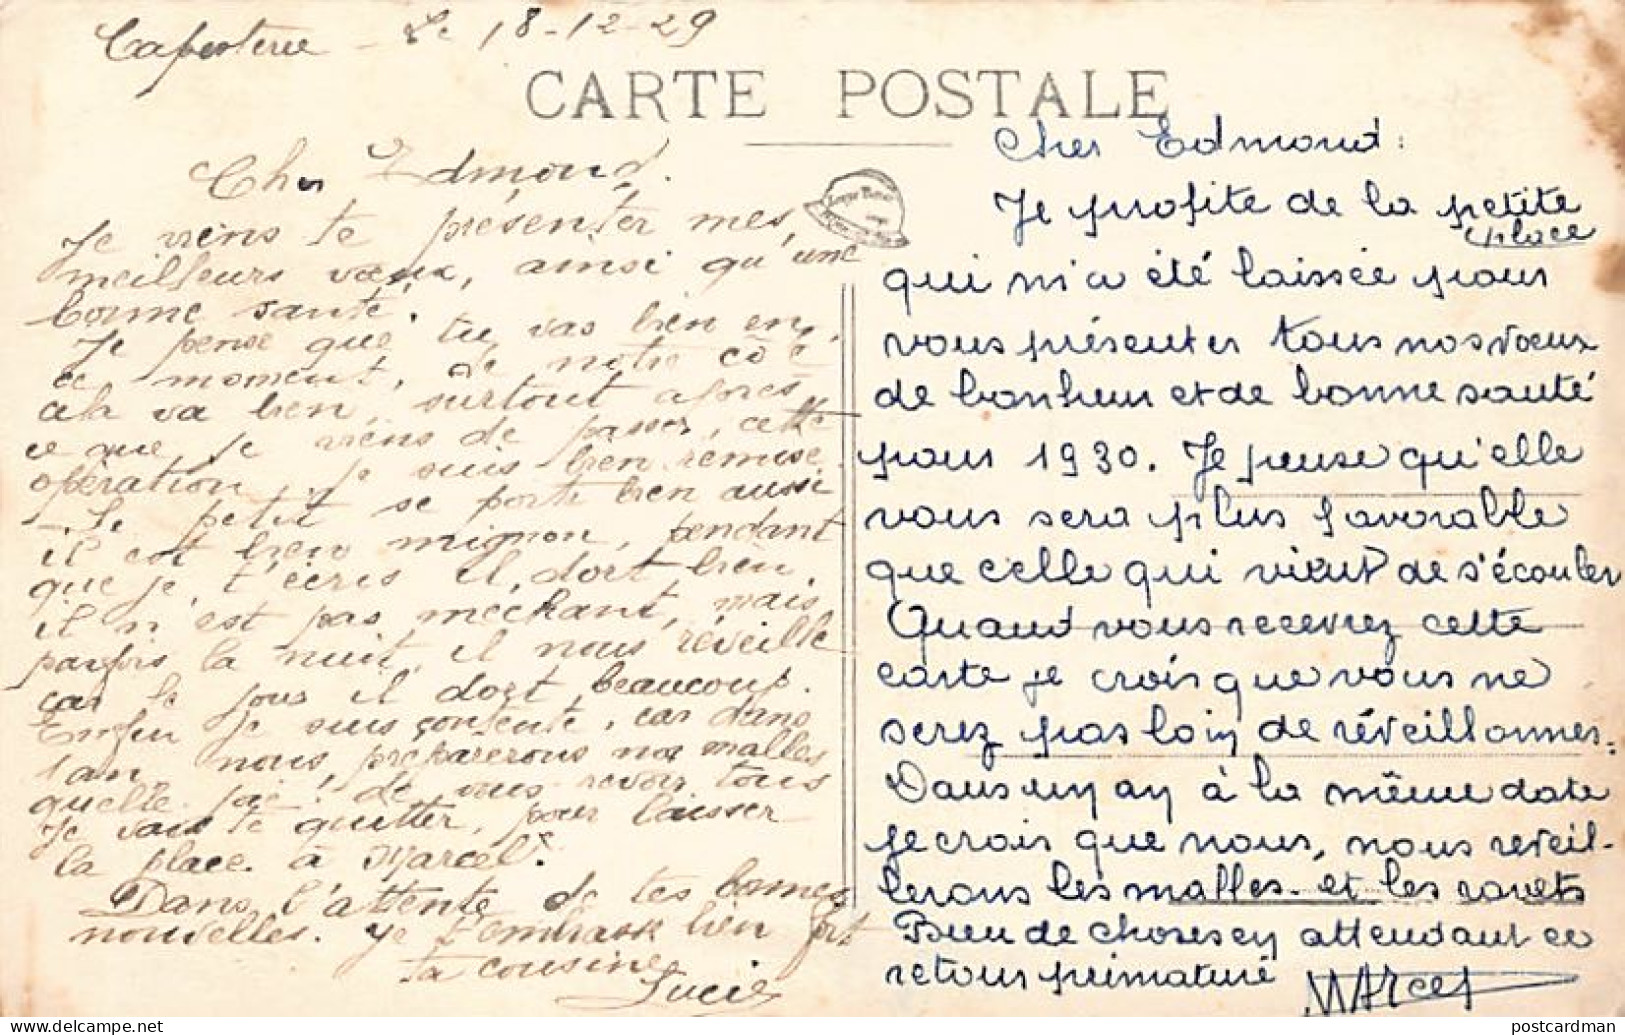 Capesterre - Le 18-12-29
CARTE POSTALE
Cher Edmond.
Je viens te présenter mes,
meilleurs vœux, ainsi qu'une
bonne santé.
Je pense que tu vas bien en,
ce moment, de notre côté
cela va bien, surtout après
ce que je viens de passer, cette
opération, je suis bien remise.
- Le petit se porte bien aussi
il est bien mignon, pendant
que je, t'écris il, dort bien,
il n'est pas méchant, mais
parfois la nuit, il nous réveille
car le jour il dort beaucoup.
Enfin je suis contente, car dans
1 an nous, préparerons nos malles
quelle joie! de vous revoir tous
Je vais te quitter, pour laisser
la place à Marcel.
Dans, l'attente de tes bonnes
nouvelles. Je t'embrasse bien fort
ta cousine
Lucie
Cher Edmond:
Je profite de la petite
place
qui m'a été laissée pour
vous présenter tous nos vœux
de bonheur et de bonne santé
pour 1930. Je pense qu'elle
vous sera plus favorable
que celle qui vient de s'écouler
Quand vous recevrez cette
carte je crois que vous ne
serez pas loin de réveillonner.
Dans un an à la même date
je crois que nous, nous reveil-
lerons les malles et les ravets
Bien de choses en attendant ce
retour prématuré MARcel
postcardman